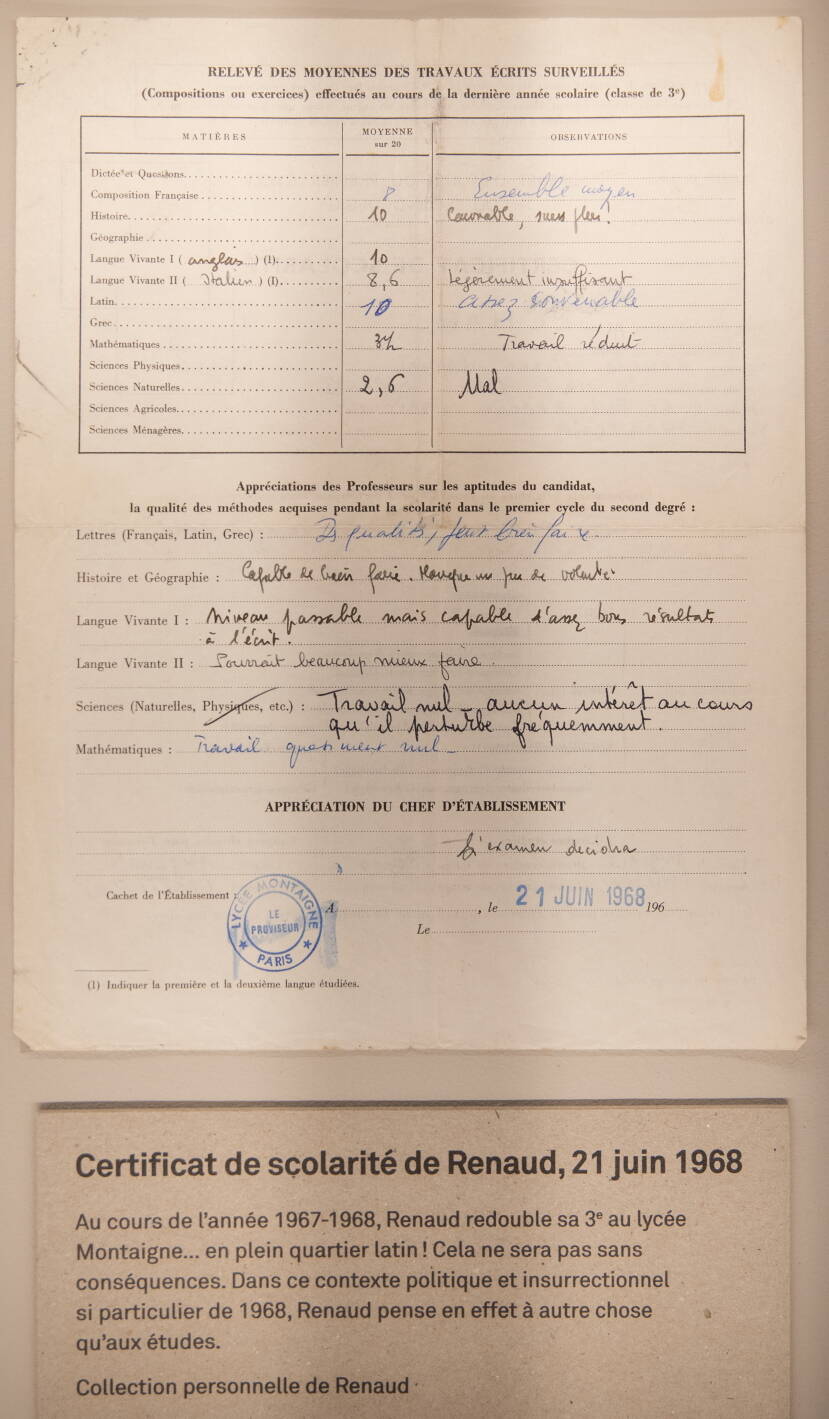 RELEVÉ DES MOYENNES DES TRAVAUX ÉCRITS SURVEILLÉS
(Compositions ou exercices) effectués au cours de la dernière année scolaire (classe de 3e)
MATIÈRES MOYENNE sur 20 OBSERVATIONS
Dictée et Questions
Composition Française 8 Ensemble moyen
Histoire 10 Convenable, sans plus!
Géographie
Langue Vivante I (anglais) (1) 10
Langue Vivante II (Italien) (1) 8,6 Légèrement insuffisant
Latin 10 assez convenable
Grec
Mathématiques Travail réduit
Sciences Physiques
Sciences Naturelles 2,6 Mal
Sciences Agricoles
Sciences Ménagères
Appréciations des Professeurs sur les aptitudes du candidat,
la qualité des méthodes acquises pendant la scolarité dans le premier cycle du second degré :
Lettres (Français, Latin, Grec) : Des qualités, peut bien faire.
Histoire et Géographie : Capable de bien faire. Manque un peu de volonté.
Langue Vivante I : Niveau passable mais capable d'assez bons résultats
à l'écrit.
Langue Vivante II : Pourrait beaucoup mieux faire.
Sciences (Naturelles, Physiques, etc.) : Travail nul _ aucun intérêt au cours
qu'il perturbe fréquemment.
Mathématiques : Travail quasiment nul _
APPRÉCIATION DU CHEF D'ÉTABLISSEMENT
L'examen decidra
Cachet de l'Établissement :
LYCÉE MONTAIGNE
LE PROVISEUR
PARIS
A , le 21 JUIN 1968 196
Le
(1) Indiquer la première et la deuxième langue étudiées.
Certificat de scolarité de Renaud, 21 juin 1968
Au cours de l'année 1967-1968, Renaud redouble sa 3e au lycée
Montaigne... en plein quartier latin ! Cela ne sera pas sans
conséquences. Dans ce contexte politique et insurrectionnel
si particulier de 1968, Renaud pense en effet à autre chose
qu'aux études.
Collection personnelle de Renaud